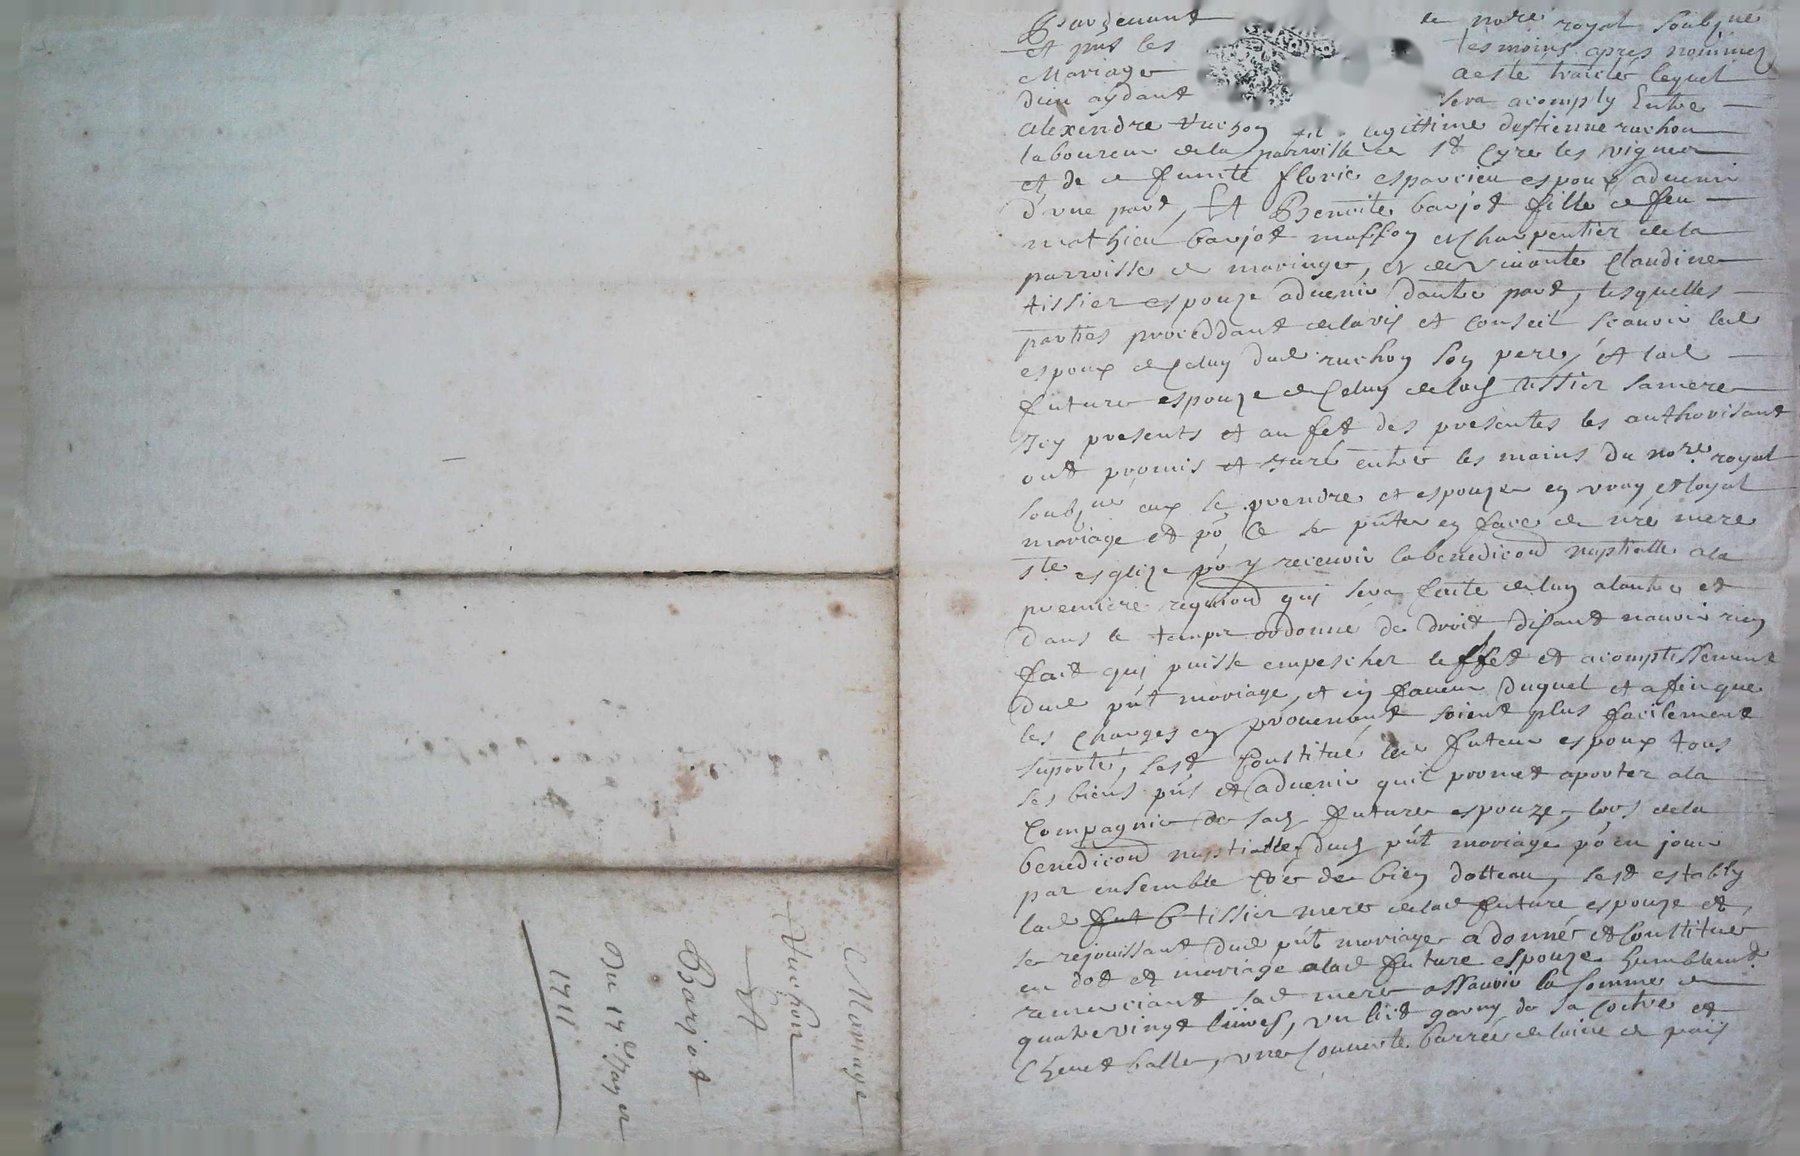 Pardevant le no.re royal soubz.né
et pnt les tesmoins apres nommez
Mariage a este traicté lequel
dieu aydant sera acomply Entre
alexendre Vuchon legittime destienne ruchon
laboureur de la parroisse de St Cyre les vignes
et de deffuncte florie esparcieu espoux aduenir
d'une part, Et Benoite barjot fille de feu
mathieu barjot masson et charpentier de la
parroisse de maringe, et de viuante Claudine
tissier espouze aduenir dautre part, lesquelles
parties proceddant de lavis et conseil scauoir led
espoux de Celuy dud ruchon son pere, Et lad
future espouze de Celuy de lad tissier sa mere
Icy presents et au fet des presentes les authorisant
ont promis et juré entre les mains du no.re royal
soubz.né eux se prendre et espouzer en vray et loyal
mariage et po. Ce se pnter en face de nre mere
ste esglize po. y receuoir la benediction nuptialle a la
premiere requion qui sera faite de lun a lautre et
dans le temps ordonné de droit disant nauoir rien
fait qui puisse empescher leffet et acomplissement
dud pnt mariage, et en faueur duquel et afin que
les charges en prouenant soient plus facilement
suporté, sest constitué led futeur espoux tous
ses biens pns et aduenir quil promet aporter a la
Compagnie de sad future espouze, lors de la
benediction nuptialle dud pnt mariage po. en jouir
par ensemble de bien dotteau, sest estably
lad fut b tissier mere de lad future espouze et
se rejouissant dud pnt mariage a donné et constitué
en dot et mariage a lad future espouze humblemt
remerciant sad mere assauoir la somme de
quatre vingt liures, un lict garny de sa coitre et
Cheuet balle, une couuerte barrée de laine de pais
Mariage
Vuchon
et
Barjot
Du 17e Jayer
1711